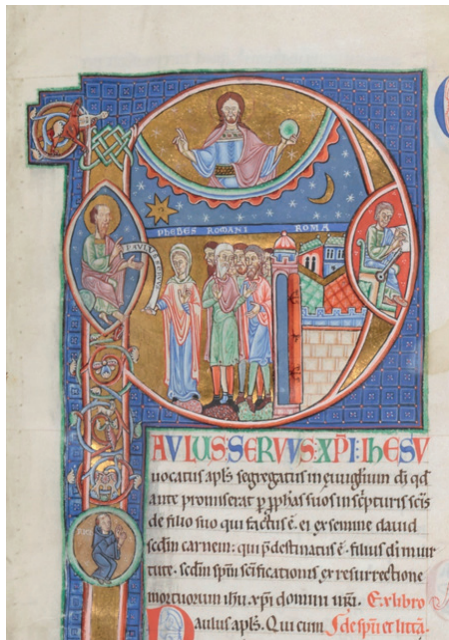 PHEBES ROMANI ROMA
AVLUS SERVVS XPI IHESV
uocatus apls segregatus in euuglium di qd
ante promiserat p pphas suos in scpturis scis
de filio suo qui factus e ei ex semine dauid
scdm carnem: qui pdestinatus e filius di in uir
tute. scdm spm scificationis ex resurrectione
mortuorum ihu xpi domini nri. Ex libro
Paulus apls. Qui cum I de spu et litta.